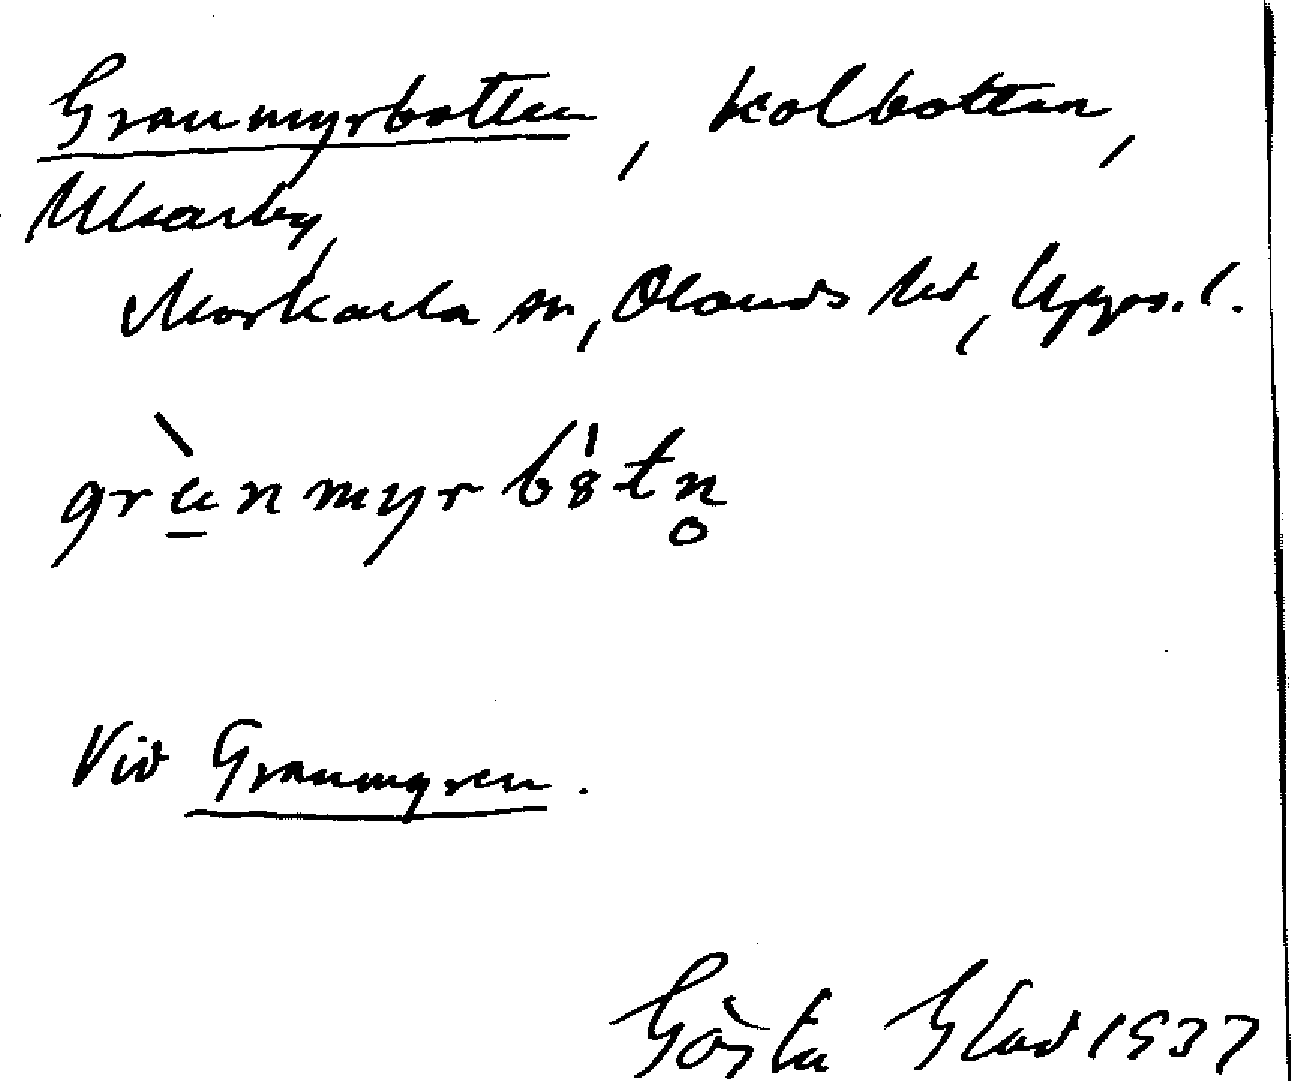 Granmyrbotten, kolbotten,
Ulkarby,
Morkarla sn, Olands hd, Upps. l.
grànmyrbòtn̥
Vid Granmyren.
Gösta Glad 1937